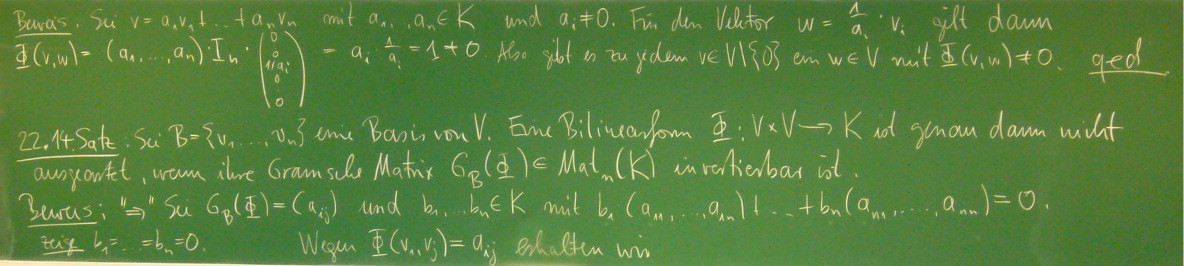 Beweis. Sei v = a₁v₁ + ... + aₙvₙ mit a₁, ., aₙ ∈ K und aᵢ ≠ 0. Für den Vektor w = 1/aᵢ · vᵢ gilt dann
Φ(v,w) = (a₁,...,aₙ) · Iₙ · (0 0 0 1/aᵢ 0 0 0) = aᵢ · 1/aᵢ = 1 ≠ 0. Also gibt es zu jedem v ∈ V\{0} ein w ∈ V mit Φ(v,w) ≠ 0. qed
22.14. Satz: Sei B = {v₁,...,vₙ} eine Basis von V. Eine Bilinearform Φ: V×V → K ist genau dann nicht
ausgeartet, wenn ihre Gramsche Matrix G_B(Φ) ∈ Matₙ(K) invertierbar ist.
Beweis: "⇒" Sei G_B(Φ) = (aᵢⱼ) und b₁...bₙ ∈ K mit b₁(a₁₁,...,a₁ₙ) + ... + bₙ(aₙ₁,...,aₙₙ) = 0.
zeige b₁ = ... = bₙ = 0. Wegen Φ(vᵢ,vⱼ) = aᵢⱼ erhalten wir